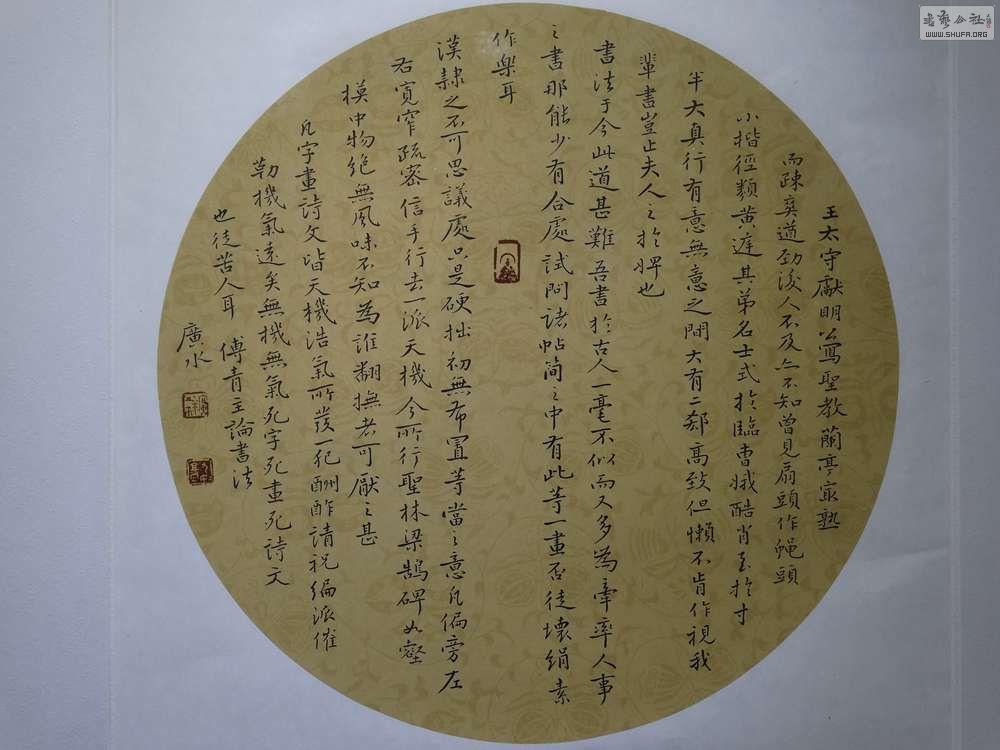 王太守獻明公寫聖教蘭亭最熟
而疎奕遒勁後人不及亦不知曾見扇頭作蠅頭
小楷徑類黃庭其弟名士式於臨曹娥酷肖至於寸
半大真行有意無意之間大有二郄高致但懶不肯作視我
輩書豈止夫人之於婢也
書法于今此道甚難吾書於古人一毫不似而又多為牽率人事
之書那能少有合處試問諸帖簡之中有此等一畫否徒壞絹素
作樂耳
漢隸之不可思議處只是硬拙初無布置等當之意凡偏旁左
右寬窄疏密信手行去一派天機今所行聖林梁鵠碑如壑
模中物絕無風味不知為誰翻撫者可厭之甚
凡字畫詩文皆天機浩氣所發一犯酬酢請祝編派催
勒機氣遠矣無機無氣死字死畫死詩文
也徒苦人耳 傅青主論書法
廣水
書藝公社
WWW.SHUFA.ORG